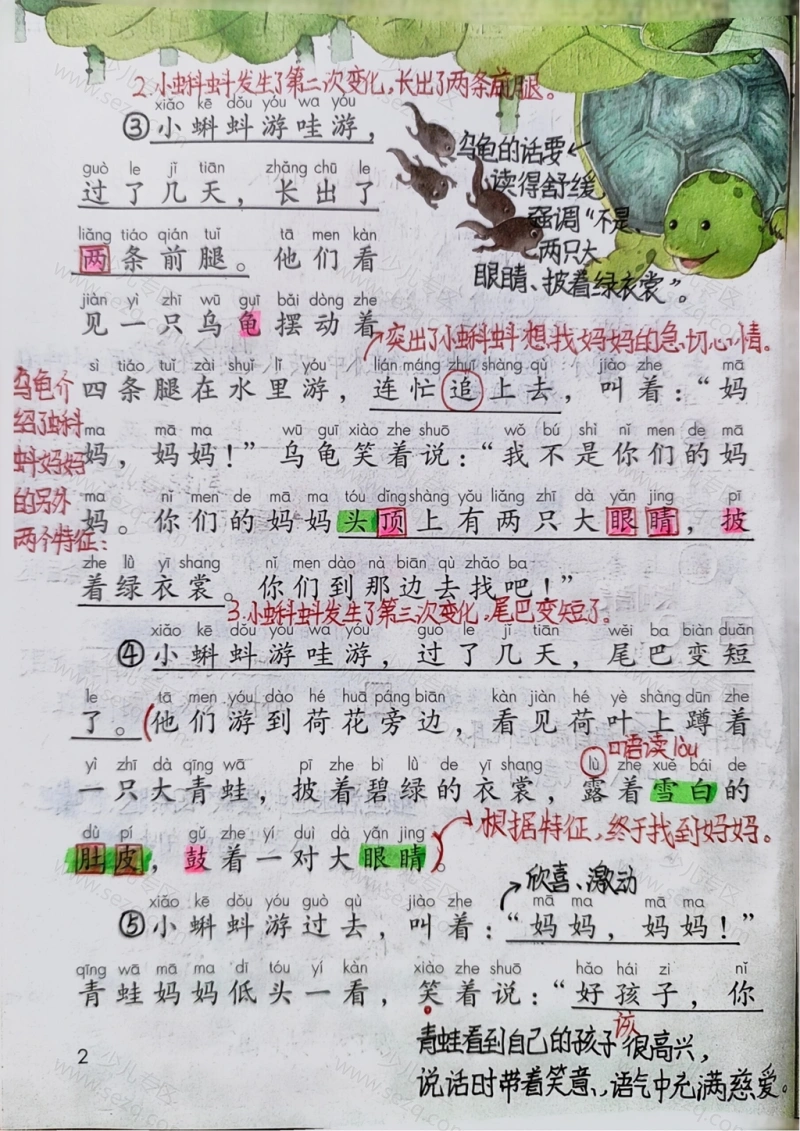 2.小蝌蚪发生了第二次变化,长出了两条前腿。
xiǎo kē dǒu yóu wa yóu
③小蝌蚪游哇游，
乌龟的话要
读得舒缓,
强调“不是、
两只大
眼睛、披着绿衣裳”。
guò le jǐ tiān zhǎng chū le
过了几天，长出了
liǎng tiáo qián tuǐ tā men kàn
两条前腿。他们看
jiàn yì zhī wū guī bǎi dòng zhe
见一只乌龟摆动着
突出了小蝌蚪想找妈妈的急切心情。
sì tiáo tuǐ zài shuǐ lǐ yóu lián máng zhuī shàng qù jiào zhe mā
四条腿在水里游，连忙追上去，叫着：“妈
乌龟介
绍了蝌
蚪妈妈
的另外
两个特征：
ma mā ma wū guī xiào zhe shuō wǒ bú shì nǐ men de mā
妈，妈妈！”乌龟笑着说：“我不是你们的妈
ma nǐ men de mā ma tóu dǐng shàng yǒu liǎng zhī dà yǎn jing pī
妈。你们的妈妈头顶上有两只大眼睛，披
zhe lǜ yī shang nǐ men dào nà biān qù zhǎo ba
着绿衣裳。你们到那边去找吧！”
3.小蝌蚪发生了第三次变化,尾巴变短了。
xiǎo kē dǒu yóu wa yóu guò le jǐ tiān wěi ba biàn duǎn
④小蝌蚪游哇游，过了几天，尾巴变短
le tā men yóu dào hé huā páng biān kàn jiàn hé yè shàng dūn zhe
了。(他们游到荷花旁边，看见荷叶上蹲着
口语读lòu
yì zhī dà qīng wā pī zhe bì lǜ de yī shang lù zhe xuě bái de
一只大青蛙，披着碧绿的衣裳，露着雪白的
dù pí gǔ zhe yí duì dà yǎn jing
肚皮，鼓着一对大眼睛。)
根据特征,终于找到妈妈。
欣喜、激动
xiǎo kē dǒu yóu guò qù jiào zhe mā ma mā ma
⑤小蝌蚪游过去，叫着：“妈妈，妈妈！”
qīng wā mā ma dī tóu yí kàn xiào zhe shuō hǎo hái zi nǐ
青蛙妈妈低头一看，笑着说：“好孩子，你
该
青蛙看到自己的孩子很高兴,
说话时带着笑意,语气中充满慈爱。
2
少儿专区
www.sezq.com